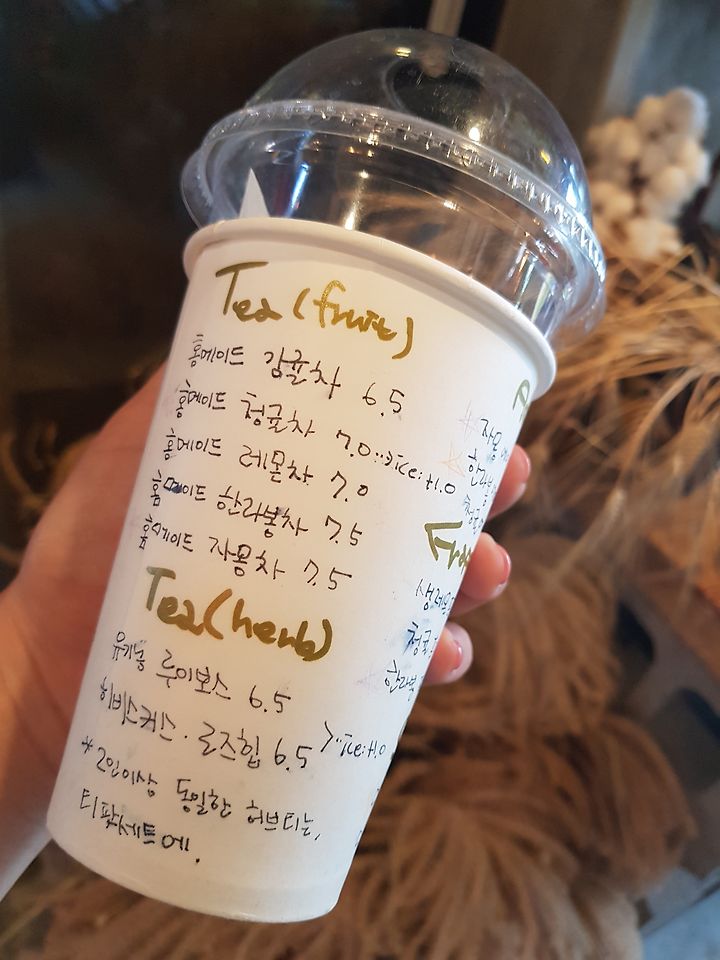 Tea (fruit)
홈메이드 감귤차 6.5
홈메이드 청귤차 7.0
홈메이드 레몬차 7.0
ice:+1.0
홈메이드 한라봉차 7.5
홈메이드 자몽차 7.5
Tea (herb)
유기농 루이보스 6.5
히비스커스·로즈힙 6.5
ice:+1.0
* 2인이상 동일한 허브티는,
티팟세트에.
자몽
한라봉
생레몬
청귤
한라봉